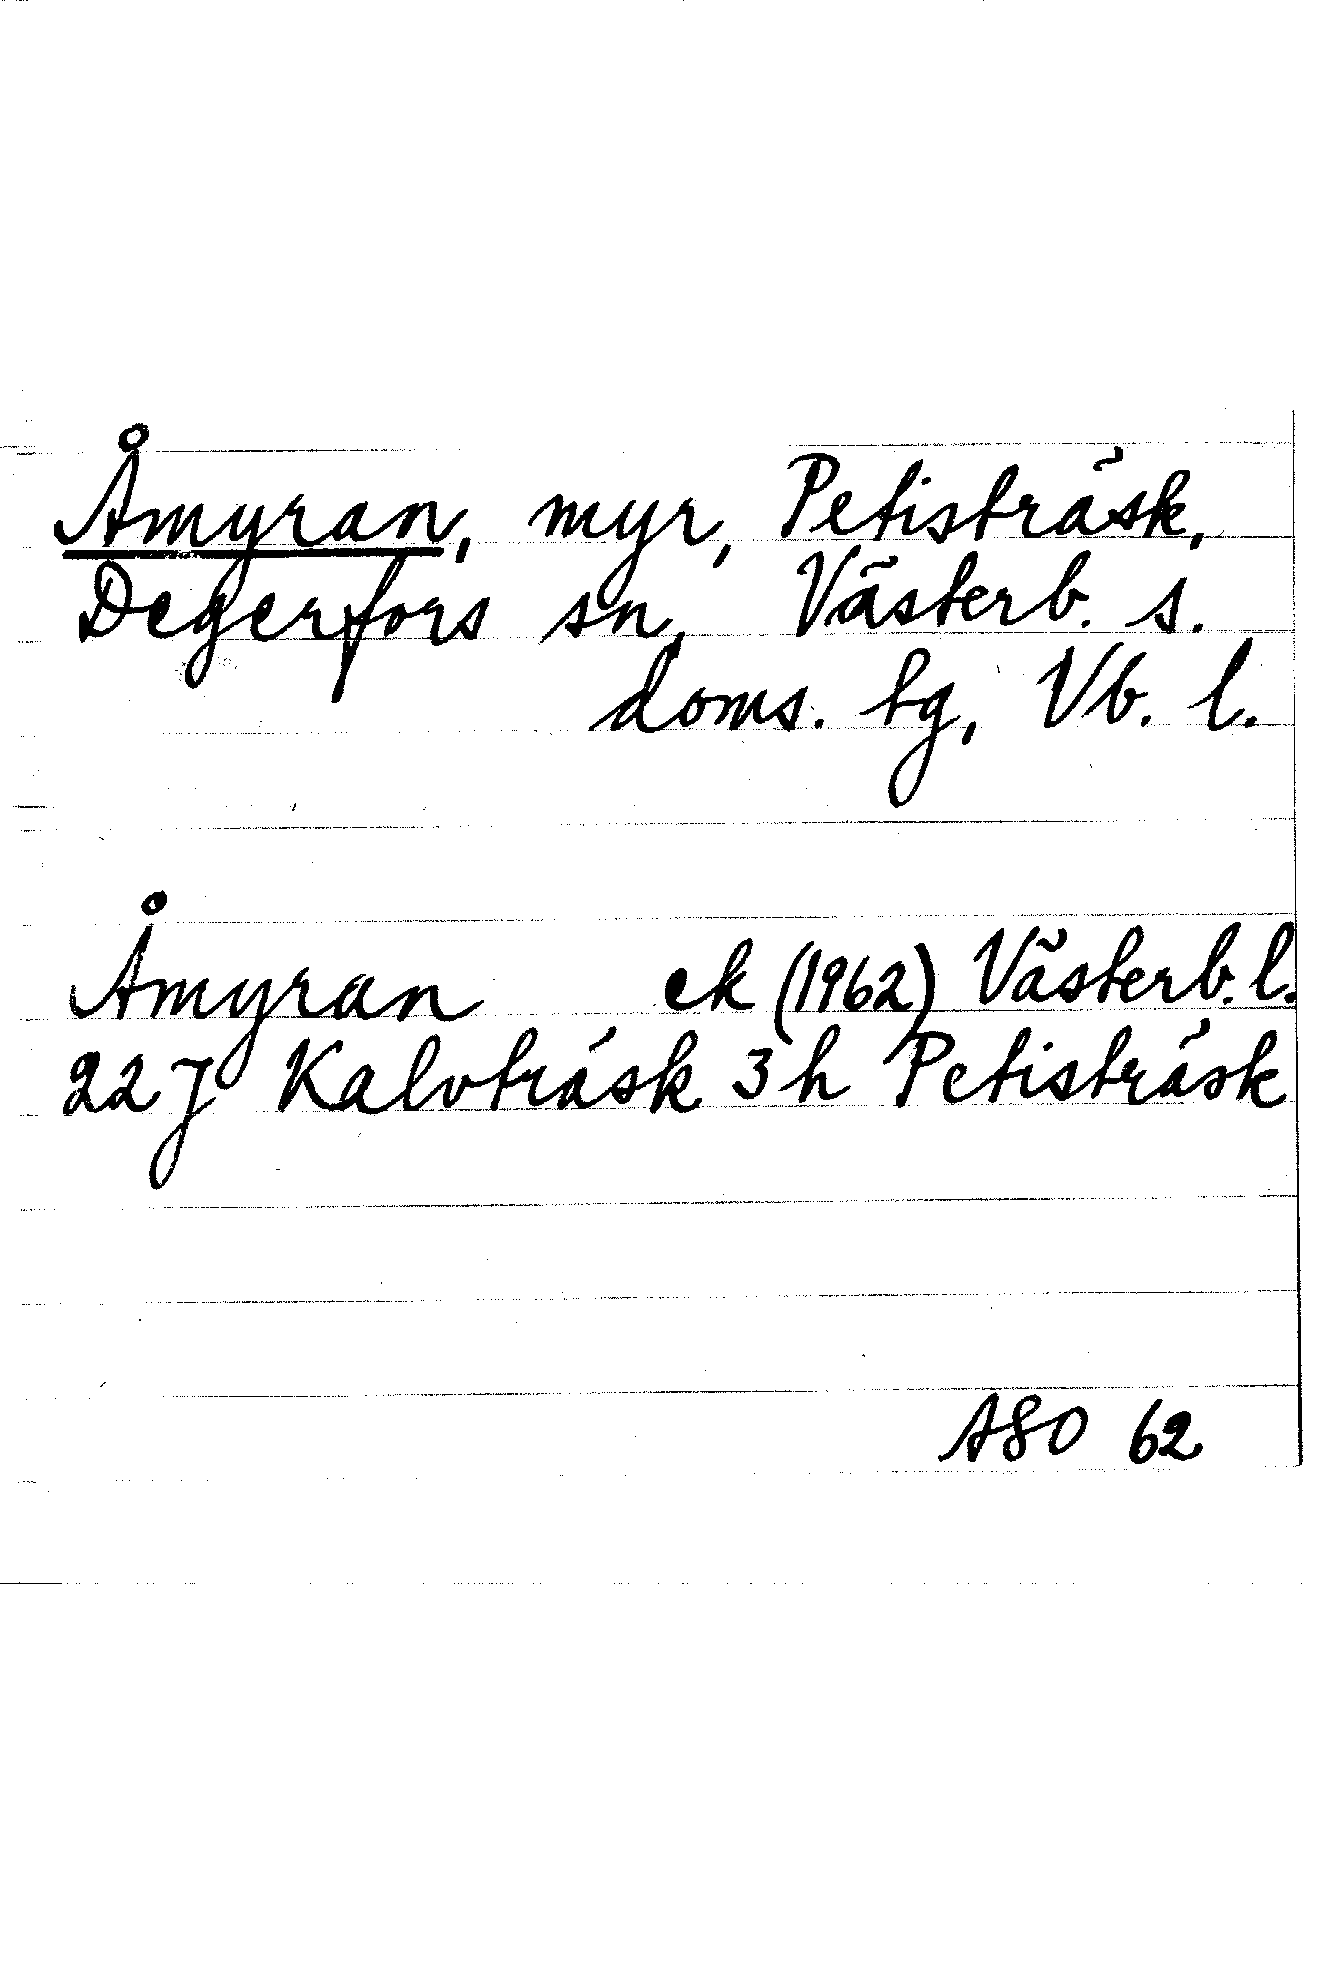 Åmyran, myr, Petisträsk,
Degerfors sn, Västerb. s.
doms. tg, Vb. l.
Åmyran ek (1962) Västerb. l.
22J Kalvträsk 3h Petisträsk
ASO 62